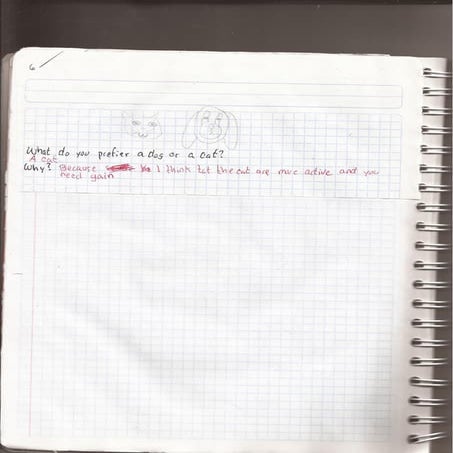 6
What do you prefier a dog or a cat?
A cat
Why? Because I think tct the cat are more active and you
need gain